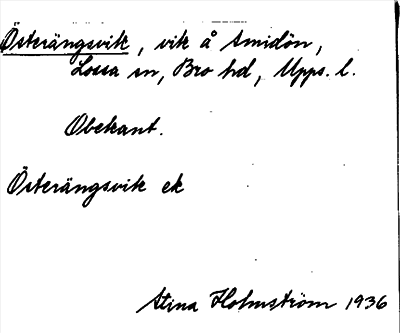 Österängsvik, vik å Smidön,
Lossa sn, Bro hd, Upps. l.
Obekant.
Österängsvik ek
Stina Holmström 1936